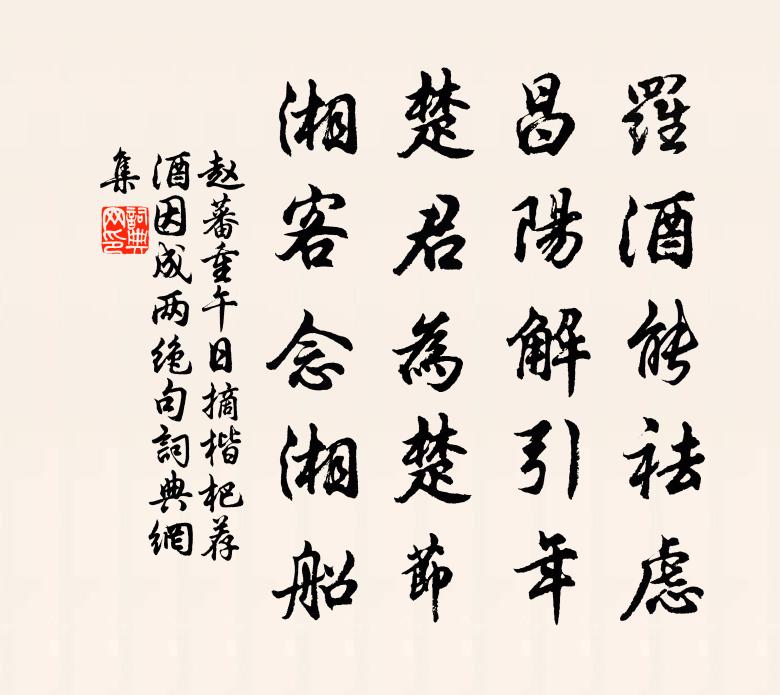 羅酒能祛慮
昌陽解引年
楚君為楚節
湘客念湘船
赵蕃重午日摘楷杷荐
酒因成两绝句詞典網
集
詞典网印